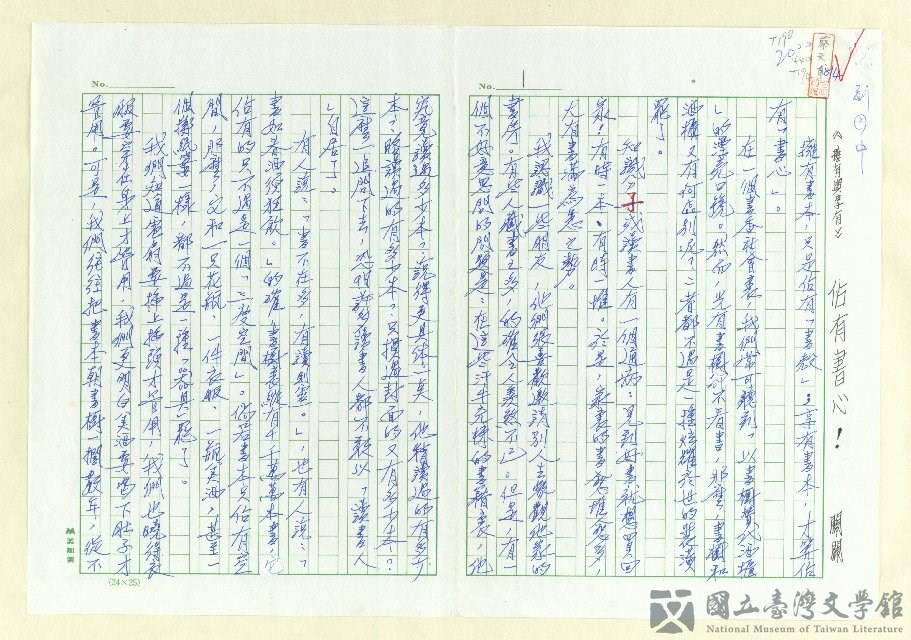 T190
2022
副回中
《擁有與享有》
佔有書心!
關關
No. 1
擁有書本,只是佔有「書殼」;享有書本,才算佔
有「書心」。
在一個書香社會裏,我們常可聽到「以書櫃代酒櫃
」的漂亮口號。然而,光有書櫃
酒櫃又有何差別呢?二者都不過是一種炫耀於世的裝潢
罷了。
知識份子或讀書人有一個通病:見到好書就想買回
家,有時一本,有時一堆。於是,家裏的書愈堆愈多,
大有書滿為患之勢。
我認識一些朋友,他們很喜歡邀請別人去參觀他家的
書房。有些人藏書之多,的確令人羨慕不已。但是,有一
個不好意思問的問題是:在這些汗牛充棟的書籍裏,他
No.
究竟讀過多少本?說得更具體一點,他精讀過的有多少
本?略讀過的有多少本?只摸過封面的又有多少本?
這麼一追問下去,恐怕許多讀書人都不敢以「讀書人
」自居了。
有人說:「書不在多,有讀則靈。」也有人說:「
書如春酒須狂飲。」的確,書櫃裏縱有千萬萬本書,它
佔有的只不過是一個「三度空間」。倘若書本只佔有空
間,那麼,它和一只花瓶、一件衣服、一瓶美酒,甚至一
個撲滿一樣,都不過是一種「器具」罷了。
我們知道電扇要插上插頭才管用,我們也曉得衣
服要穿在身上才管用,我們更明白美酒要喝下肚子才
管用。可是,我們往往把書本朝書櫃一擱數年,從不
(24×25)
國立臺灣文學館
National Museum of Taiwan Literature